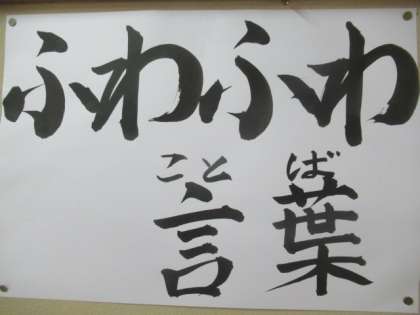 ふわふわ
ことば
言葉